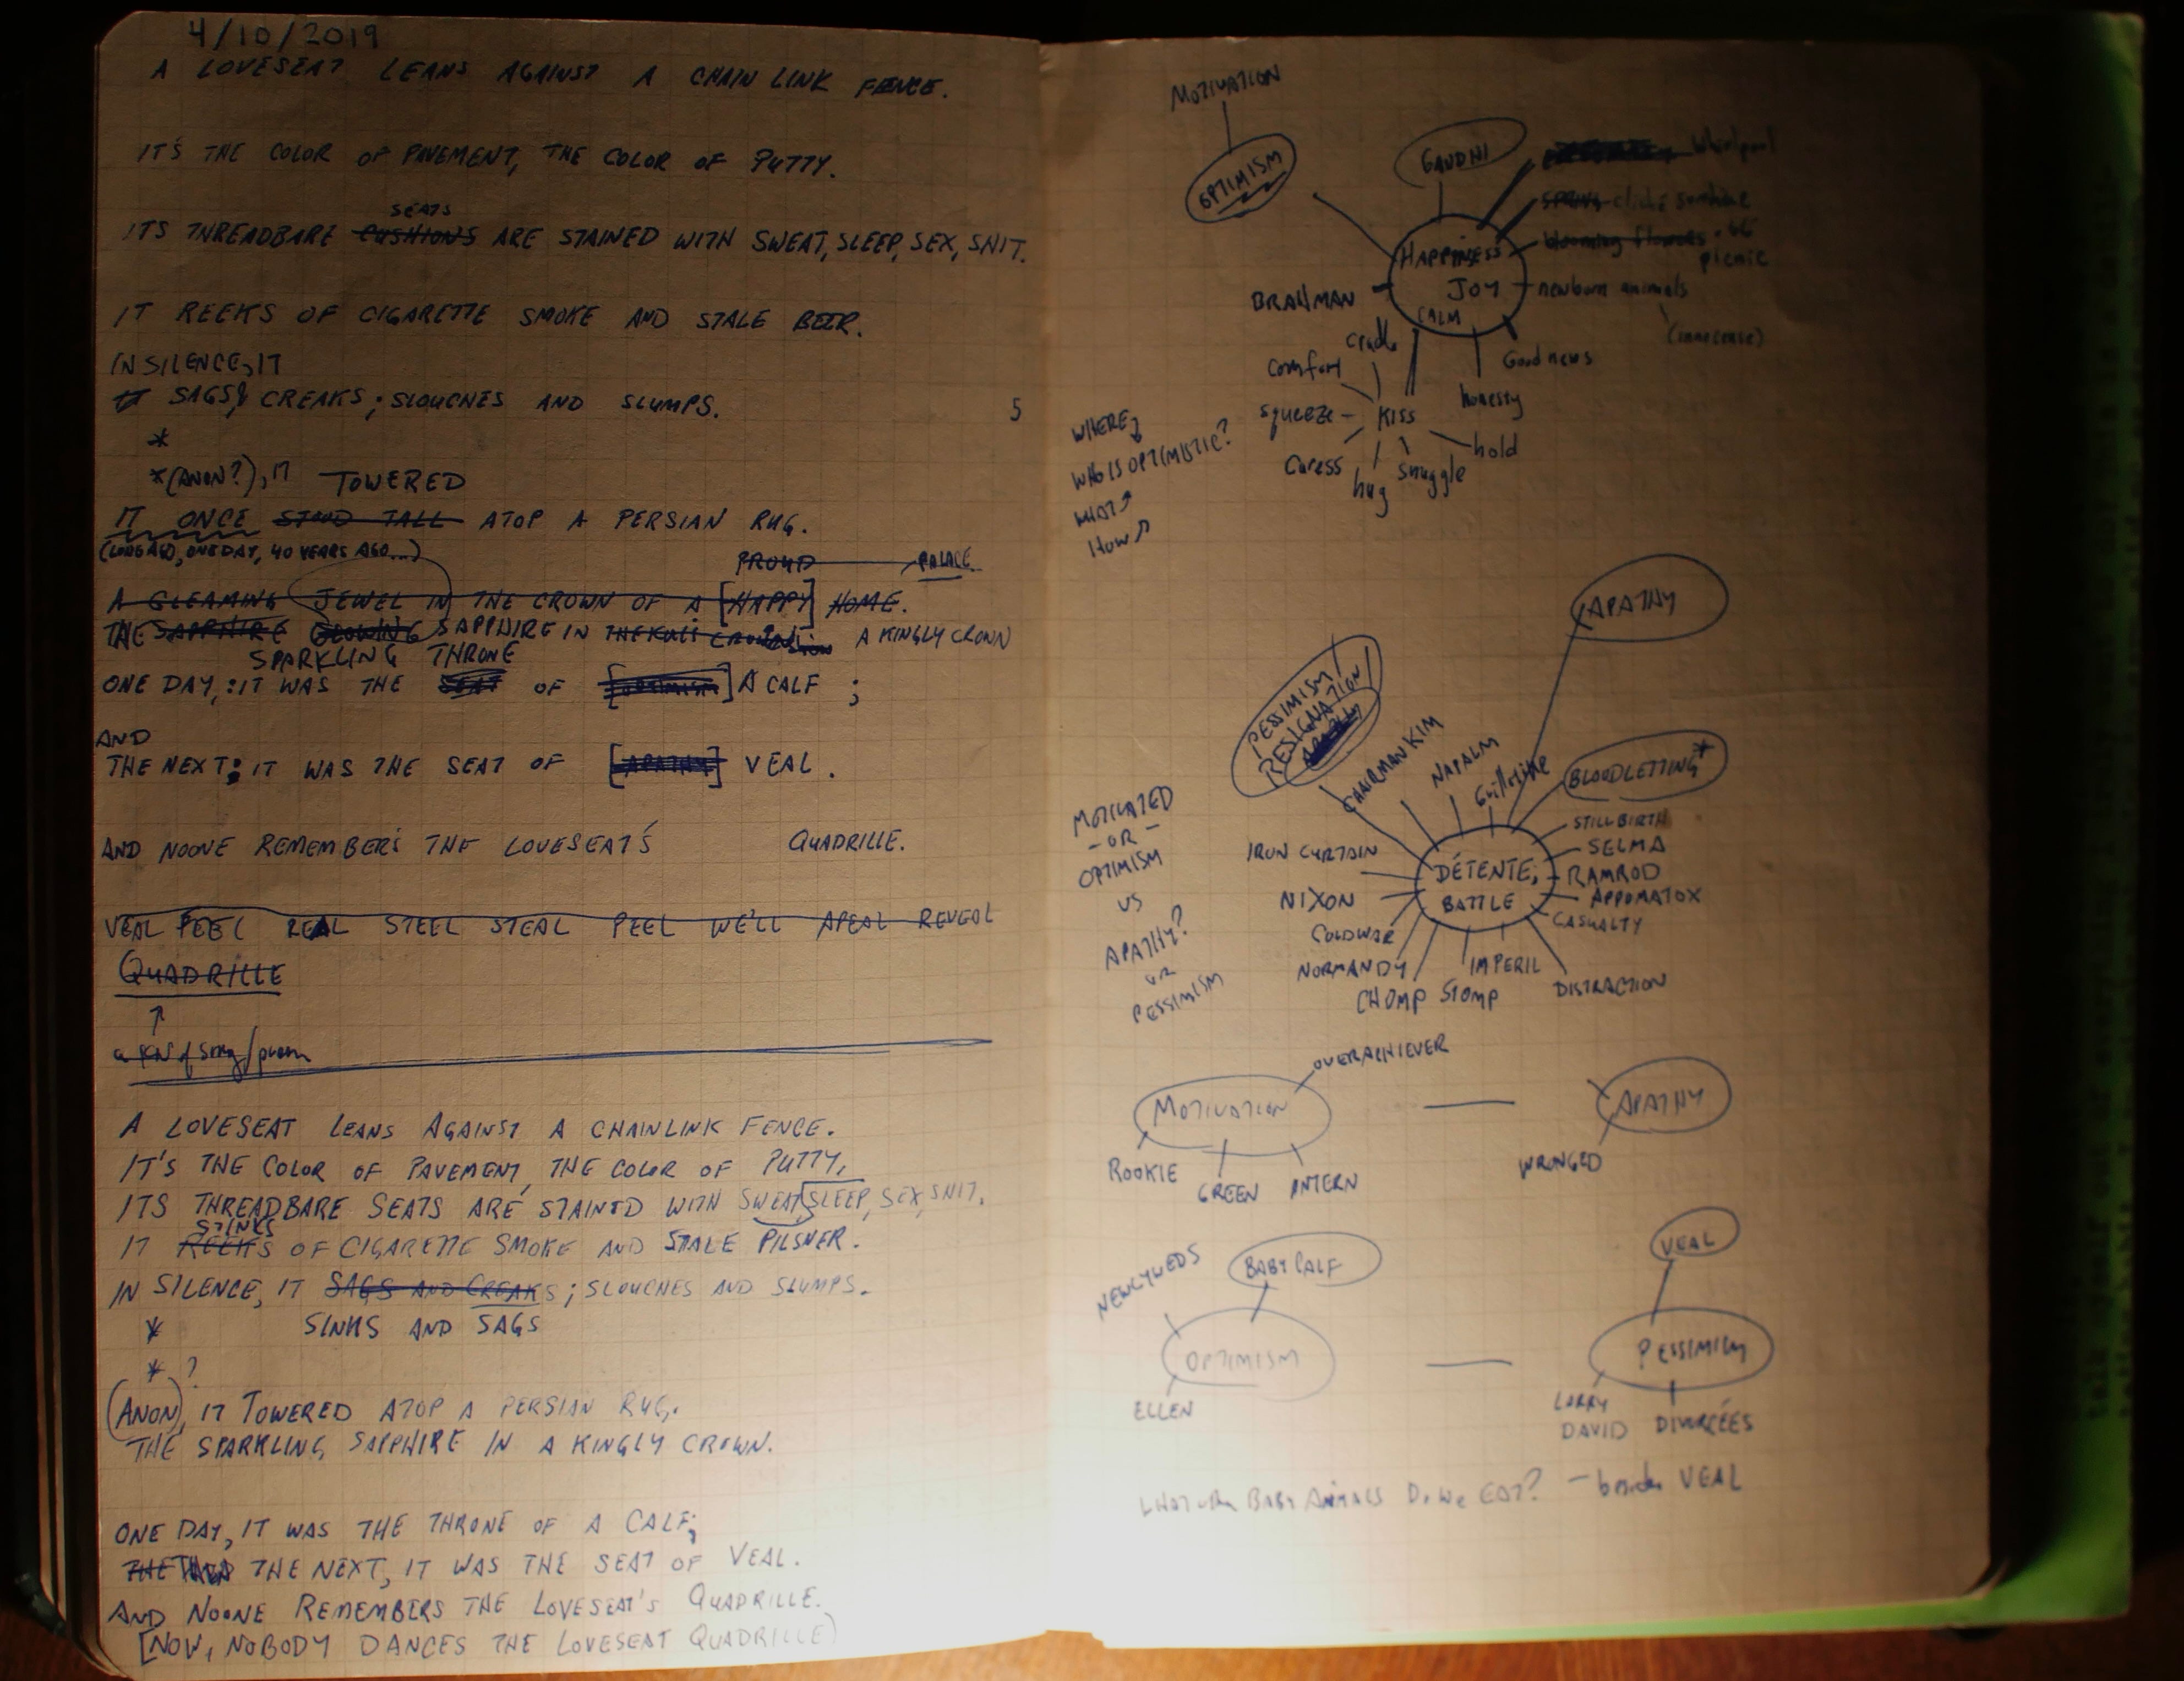 4/10/2019
A LOVESEAT LEANS AGAINST A CHAIN LINK FENCE.
IT'S THE COLOR OF PAVEMENT, THE COLOR OF PUTTY.
SEATS
ITS THREADBARE CUSHIONS ARE STAINED WITH SWEAT, SLEEP, SEX, SHIT.
IT REEKS OF CIGARETTE SMOKE AND STALE BEER.
IN SILENCE, IT
IT SAGS, CREAKS; SLOUCHES AND SLUMPS.
5
*
*(ANON?), IT TOWERED
IT ONCE STOOD TALL ATOP A PERSIAN RUG.
(LONG AGO, ONE DAY, 40 YEARS AGO...)
PROUD PALACE
A GLEAMING JEWEL IN THE CROWN OF A [HAPPY] HOME.
THE SAPPHIRE GLOWING SAPPHIRE IN A KINGLY CROWN
SPARKLING THRONE
ONE DAY,: IT WAS THE SEAT OF [OPTIMISM] A CALF;
AND
THE NEXT: IT WAS THE SEAT OF [APATHY] VEAL.
AND NOONE REMEMBER'S THE LOVESEAT'S QUADRILLE.
VEAL FEEL REAL STEEL STEAL PEEL WE'LL APEAL REVEAL
QUADRILLE
A LOVESEAT LEANS AGAINST A CHAINLINK FENCE.
IT'S THE COLOR OF PAVEMENT, THE COLOR OF PUTTY,
ITS THREADBARE SEATS ARE STAINED WITH SWEAT, SLEEP, SEX, SHIT.
STINKS
IT REEKS OF CIGARETTE SMOKE AND STALE PILSNER.
IN SILENCE, IT SAGS AND CREAKS; SLOUCHES AND SLUMPS.
* SINKS AND SAGS
* ?
(ANON), IT TOWERED ATOP A PERSIAN RUG.
THE SPARKLING SAPPHIRE IN A KINGLY CROWN.
ONE DAY, IT WAS THE THRONE OF A CALF;
THE NEXT, IT WAS THE SEAT OF VEAL.
AND NOONE REMEMBERS THE LOVESEAT'S QUADRILLE.
[NOW, NOBODY DANCES THE LOVESEAT QUADRILLE)
MOTIVATION
OPTIMISM
GANDHI
Whirlpool
SPRING cliché sunshine
blooming flowers
picnic
HAPPINESS
JOY
CALM
newborn animals
(innocense)
BRAHMAN
cradle
Good news
comfort
honesty
squeeze - KISS
hold
caress
hug
snuggle
WHERE
WHO IS OPTIMISTIC?
WHAT
HOW
APATHY
PESSIMISM
RESIGNATION
APATHY
CHAIRMAN KIM
NAPALM
Guillotine
BLOODLETTING*
STILLBIRTH
SELMA
RAMROD
APPOMATOX
CASUALTY
DÉTENTE;
BATTLE
IRON CURTAIN
NIXON
COLD WAR
NORMANDY
CHOMP
STOMP
IMPERIL
DISTRACTION
MOTIVATED
- OR -
OPTIMISM
VS
APATHY?
OR
PESSIMISM
OVERACHIEVER
MOTIVATION — APATHY
ROOKIE
GREEN
INTERN
WRONGED
NEWLYWEDS
BABY CALF
VEAL
OPTIMISM — PESSIMISM
ELLEN
LARRY
DAVID
DIVORCÉES
BABY ANIMALS DO WE EAT? - besides VEAL